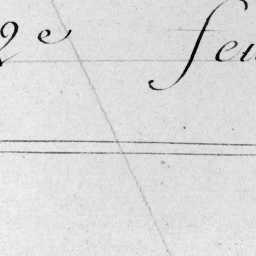 2e feu